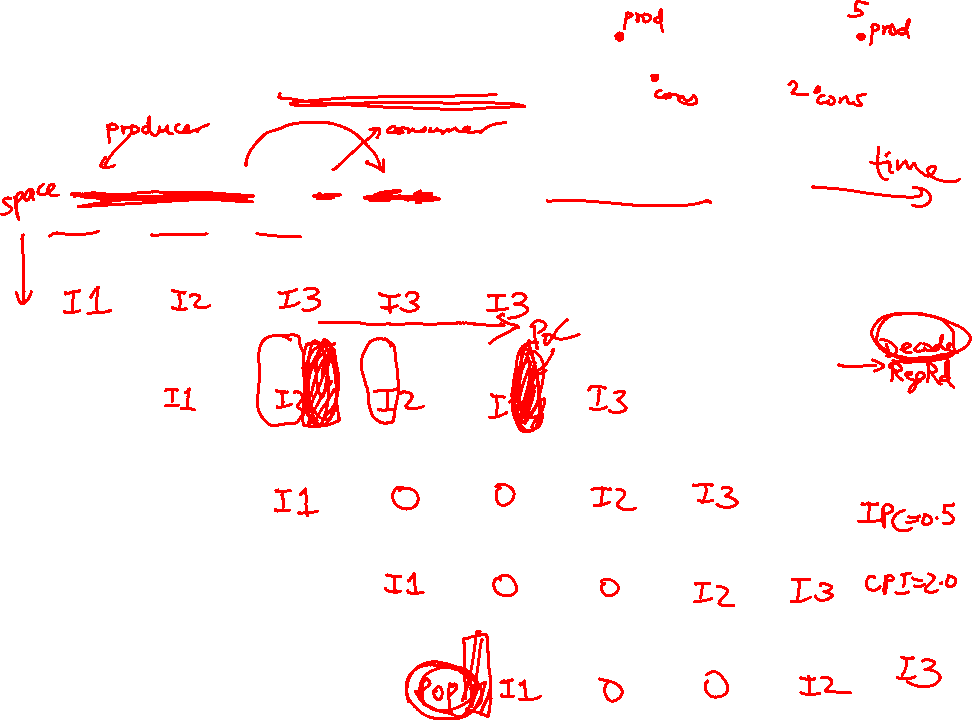 prod
5
prod
cons
2 cons
producer
consumer
time
space
I1 I2 I3 I3 I3
PoC
Decode
RegRd
I1 I2 I2 I3
I1 0 0 I2 I3
IPC=0.5
I1 0 0 I2 I3
CPI=2.0
POP I1 0 0 I2 I3